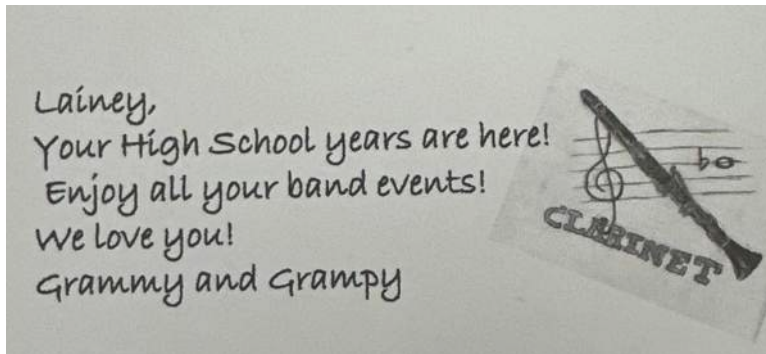 Lainey,
Your High School years are here!
Enjoy all your band events!
We love you!
Grammy and Grampy
CLARINET